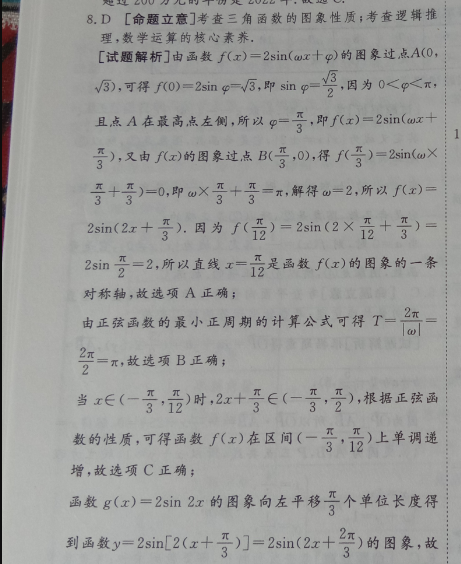 8. D [命题立意]考查三角函数的图象性质;考查逻辑推
理,数学运算的核心素养.
[试题解析]由函数 f(x)=2sin(ωx+φ)的图象过点A(0,
√3),可得 f(0)=2sin φ=√3,即 sin φ=√3/2,因为 0<φ<π,
且点 A 在最高点左侧,所以 φ=π/3,即f(x)=2sin(ωx+
π/3),又由 f(x)的图象过点 B(π/3,0),得 f(π/3)=2sin(ω×
π/3+π/3)=0,即 ω×π/3+π/3=π,解得 ω=2,所以 f(x)=
2sin(2x+π/3). 因为 f(π/12)=2sin(2×π/12+π/3)=
2sin π/2=2,所以直线 x=π/12是函数 f(x)的图象的一条
对称轴,故选项 A 正确;
由正弦函数的最小正周期的计算公式可得 T=2π/|ω|=
2π/2=π,故选项 B 正确;
当 x∈(-π/3,π/12)时,2x+π/3∈(-π/3,π/2),根据正弦函
数的性质,可得函数 f(x)在区间(-π/3,π/12)上单调递
增,故选项 C 正确;
函数 g(x)=2sin 2x 的图象向左平移π/3个单位长度得
到函数y=2sin[2(x+π/3)]=2sin(2x+2π/3)的图象,故
1